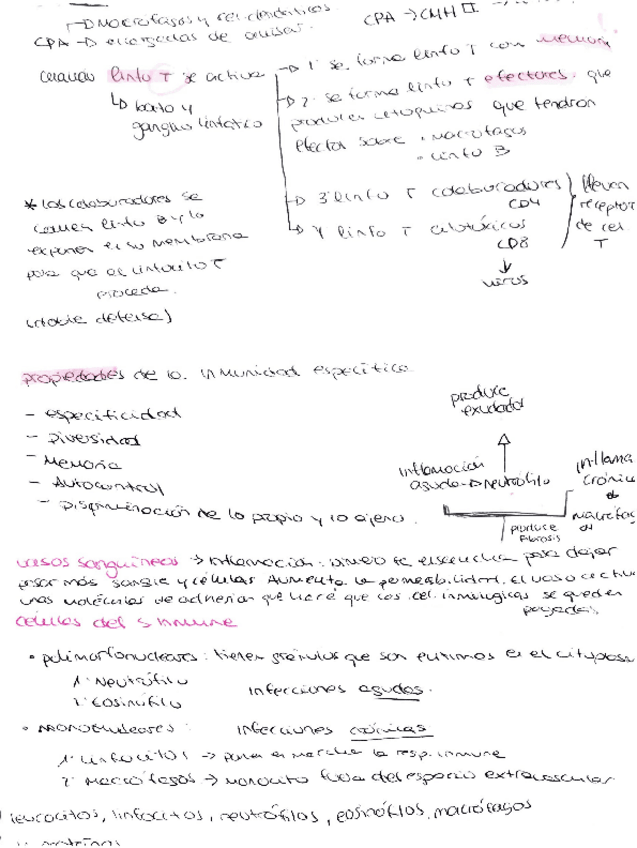 → Macrófagos y cel. dendríticas
CPA → CMH II
CPA → encargadas de avisar.
cuando linfo T se activa
↳ bazo y
ganglio linfático
→ 1. se forma linfo T con memoria
→ 2. se forma linfo T efectores. que
producen citoquinas que tendrán
efectos sobre . macrófagos
. linfo B
→ 3. linfo T colaboradores
CD4
→ 4. linfo T citotóxicos
CD8
↓
virus
llevan
receptor
de cel.
T
* Los colaboradores se
comen linfo B y lo
exponen en su membrana
para que el linfocito T
proceda.
(doble defensa)
propiedades de la inmunidad específica
- especificidad
- Diversidad
- Memoria
- Autocontrol
- Discriminación de lo propio y lo ajeno.
produce
exudado
inflamación
aguda → neutrófilo
inflama
crónica
macrófag
produce
fibrosis
vasos sanguíneos → inflamación: se ensancha para dejar
pasar más sangre y células. Aumenta la permeabilidad. El vaso activa
unas moléculas de adhesión que hará que las cel. inmunológicas se queden
pegadas.
células del s inmune
• polimorfonucleares: tienen gránulos que son enzimas en el citoplasma
1. Neutrófilo
2. Eosinófilo
infecciones agudas.
• mononucleares:
infecciones crónicas
1. Linfocitos → ponen en marcha la resp. inmune
2. Macrófagos → monocito fuera del espacio extravascular
leucocitos, linfocitos, neutrófilos, eosinófilos, macrófagos